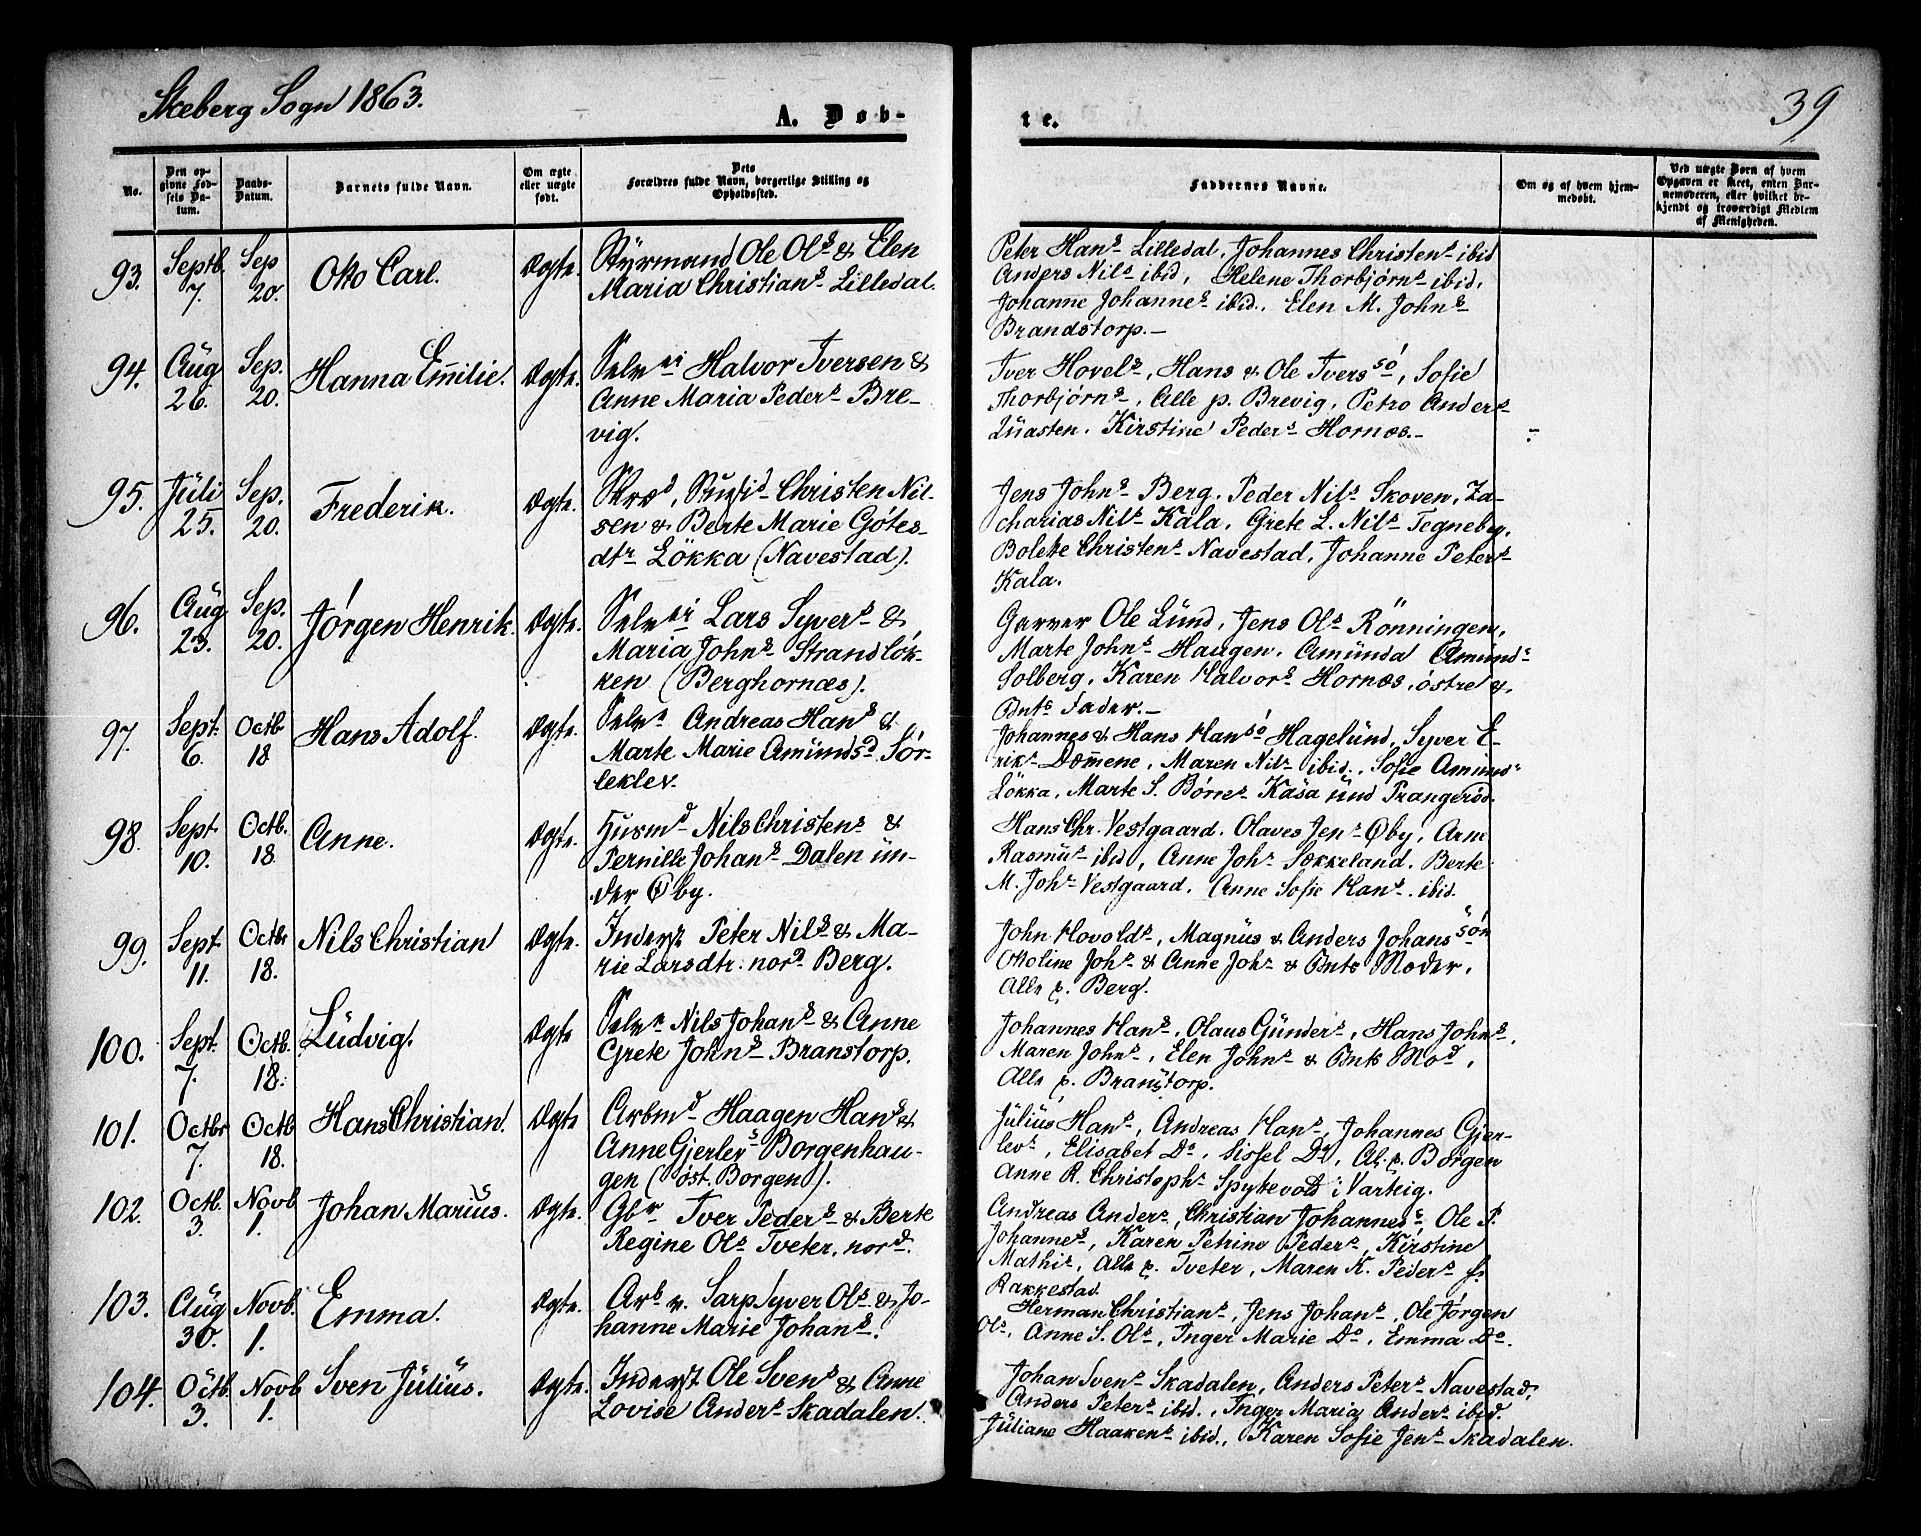 Skeberg Sogn 1863.
A. Døb-
te.
39
No.
Den op-
givne Fød-
sels Da-
tum.
Daabs-
Datum.
Barnets fulde Navn.
Om ægte
eller uægte
født.
Dets
Forældres fulde Navn, borgerlige Stilling og
Opholdssted.
Faddernes Navne.
Om og af hvem hjem-
medøbt.
Ved uægte Børn af hvem
Opgaven er skeet, enten Bar-
nemoderen, eller hvilket be-
kjendt og troværdigt Medlem
af Menigheden.
93. Septb. 7. Sep 20. Otto Carl. Ægte.
Styrmand Ole Ols & Elen
Maria Christians Lilledal.
Peter Hans Lilledal, Johannes Christens ibid
Anders Nils ibid, Helene Thorbjørns ibid.
Johanne Johannes ibid. Elen M. Johns
Brandstorp.-
94. Aug 26. Sep. 20. Hanna Emilie. Ægte.
Selvei Halvor Iversen &
Anne Maria Peders Bre-
vig.
Iver Hovels, Hans & Ole Iversso, Sofie
Thorbjørns, Alle p. Brevig, Petro Anders
Quasten. Kirstine Peders Hornæs.-
95. Juli 25. Sep. 20. Frederik. Ægte.
Christen Nil-
sen & Berte Marie Götes-
dtr Lökka (Navestad).
Jens Johns Berg, Peder Nils Skoven, Za-
charias Nils Kala, Grete L. Nils Tegneby,
Bolette Christens Navestad, Johanne Peters
Kala.
96. Aug 23. Sep. 20. Jørgen Henrik. Ægte.
Selvei Lars Syvers &
Maria Johns Strandløk-
ken (Berghornæs).
Garver Ole Lund, Jens Ols Rönningen,
Marte Johns Haugen, Amunda Amunds
Solberg, Karen Halvors Hornæs, østre &
Bnts Fader.-
97. Sept. 6. Octb 18 Hans Adolf. Ægte.
Selve Andreas Hans &
Marte Marie Amundsd Sør-
leklev.
Johannes & Hans Hansso Hagelund, Syver E-
riks Dæmene, Maren Nils ibid., Sofie Amunds
Lökka, Marte S. Børres Kåsa und Prangerød.
98. Sept. 10. Octb. 18. Anne. Ægte.
Husmd Nils Christens &
Pernille Johans Dalen un-
der Øby.
Hans Chr. Vestgaard. Olaves Jens Øby, Arne
Rasmus ibid, Anne Johs Sækkeland. Berte
M. Johs Vestgaard. Anne Sofie Hans ibid.
99. Sept. 11. Octbr 18. Nils Christian Ægte.
Inderst Peter Nils & Ma-
rie Larsdtr. nord Berg.
John Hovolds, Magnus & Anders Johanssøn
Ottoline Johs & Anne Johs & Bnts Moder.
Alle p. Berg.
100. Sept. 7. Octb. 18. Ludvig. Ægte
Selve Nils Johans & Anne
Grete Johns Branstorp.
Johannes Hans, Olaus Gunders, Hans Johns,
Maren Johns, Elen Johns & Bnts Mod,
Alle p. Branstorp.
101. Octbr 7. Octb 18. Hans Christian. Ægte
Arbmd Haagen Hans &
Anne Gjerlevs Borgenhau-
gen (øst. Borgen).
Julius Hans, Andreas Hans, Johannes Gjer-
levs, Elisabet Do, Sissel Do, Al. p. Borgen
Anne R. Christophs Spytevold i Varteig.
102. Octb. 3. Novb 1. Johan Marius. Ægte.
Gbr Iver Peders & Berte
Regine Ols Tveter, nord.
Andreas Anders, Christian Johannes, Ole P.
Johannes, Karen Petrine Peders, Kirstine
Mathis, Alle p. Tveter, Maren K. Peders f.
Rakkestad
103. Aug 30. Novb. 1. Emma. Ægte.
Arb v. Sarp Syver Ols & Jo-
hanne Marie Johans.
Herman Christians, Jens Johans, Ole Jørgen
Ols, Anne S. Ols, Inger Marie Do, Emma Do
104. Octb. 3. Novb 1. Sven Julius. Ægte.
Inderst Ole Svens & Anne
Lovise Anders Skadalen.
Johan Svens Skadalen, Anders Peters Navestad,
Anders Peters ibid., Inger Maria Anders ibid.
Juliane Haakens ibid., Karen Sofie Jens Skadalen.